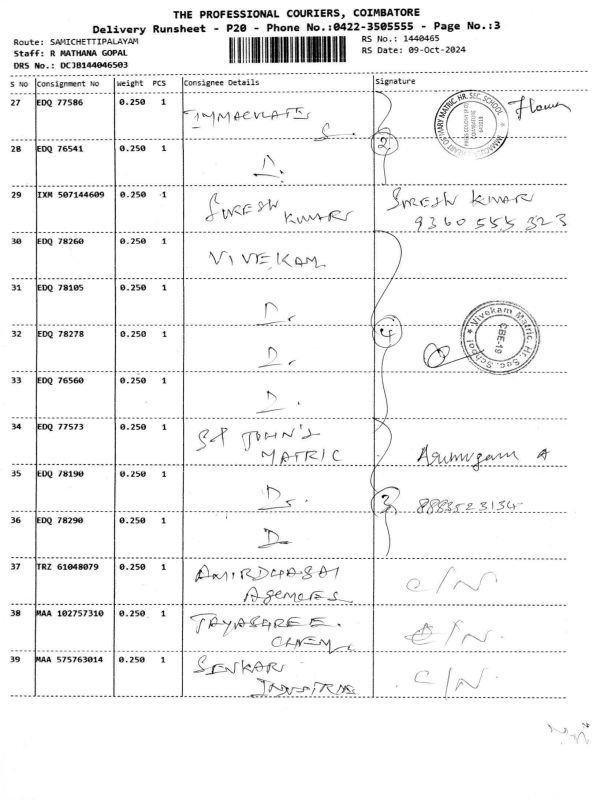 THE PROFESSIONAL COURIERS, COIMBATORE
Delivery Runsheet - P20 - Phone No.:0422-3505555 - Page No.:3
Route: SAMICHETTIPALAYAM
RS No.: 1440465
Staff: R MATHANA GOPAL
RS Date: 09-Oct-2024
DRS No.: DCJB144046503
S No Consignment No Weight PCS Consignee Details Signature
27 EDQ 77586 0.250 1 IMMACULATE
28 EDQ 76541 0.250 1 D. 2
29 IXM 507144609 0.250 1 SURESH KUMAR SURESH KUMAR
9360 555 323
30 EDQ 78260 0.250 1 VIVEKAM
31 EDQ 78105 0.250 1 D.
32 EDQ 78278 0.250 1 D. 4
Vivekam Matric. Hr. Sec. School
CBE-19
33 EDQ 76560 0.250 1 D.
34 EDQ 77573 0.250 1 ST JOHN'S
MATRIC Arumugam A
35 EDQ 78190 0.250 1 D. 3 8883523134
36 EDQ 78290 0.250 1 D
37 TRZ 61048079 0.250 1
Agencies C/N
38 MAA 102757310 0.250 1 JAYASHREE
CHEM C/N.
39 MAA 575763014 0.250 1 C/N.